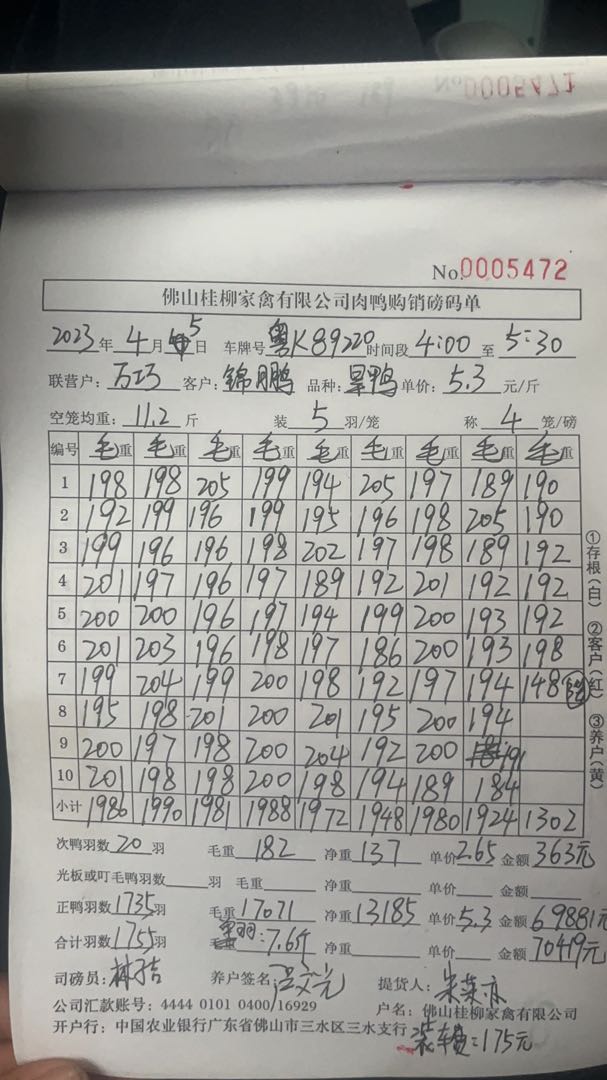 No.0005471
No.0005472
佛山桂柳家禽有限公司肉鸭购销磅码单
2023年 4月 5日 车牌号 粤K89220 时间段 4:00 至 5:30
联营户: 万巧 客户: 錦鹏 品种: 旱鸭 单价: 5.3 元/斤
空笼均重: 11.2 斤 装 5 羽/笼 称 4 笼/磅
编号 毛重 毛重 毛重 毛重 毛重 毛重 毛重 毛重 毛重
1 198 198 205 199 194 205 197 189 190
2 192 199 196 199 195 196 198 205 190
3 199 196 196 198 202 197 198 189 192
4 201 197 196 197 189 192 201 192 192
5 200 200 196 197 194 199 200 193 192
6 201 203 196 198 197 186 200 193 198
7 199 204 199 200 198 192 197 194 148
8 195 198 201 200 201 195 200 194
9 200 197 198 200 204 192 200 191
10 201 198 198 200 198 194 189 184
小计 1986 1990 1981 1988 1972 1948 1980 1924 1302
次鸭羽数 20 羽 毛重 182 净重 137 单价 2.65 金额 363元
光板或叮毛鸭羽数 羽 毛重 净重 单价 金额
正鸭羽数 1735羽 毛重 17071 净重 13185 单价 5.3 金额 69881元
合计羽数 1755羽 羽: 7.6斤 净重 单价 金额 70419元
司磅员: 养户签名: 提货人:
公司汇款账号: 4444 0101 0400/16929 户名: 佛山桂柳家禽有限公司
开户行: 中国农业银行广东省佛山市三水区三水支行
装车费=175元
①存根(白) ②客户(红) ③养户(黄)